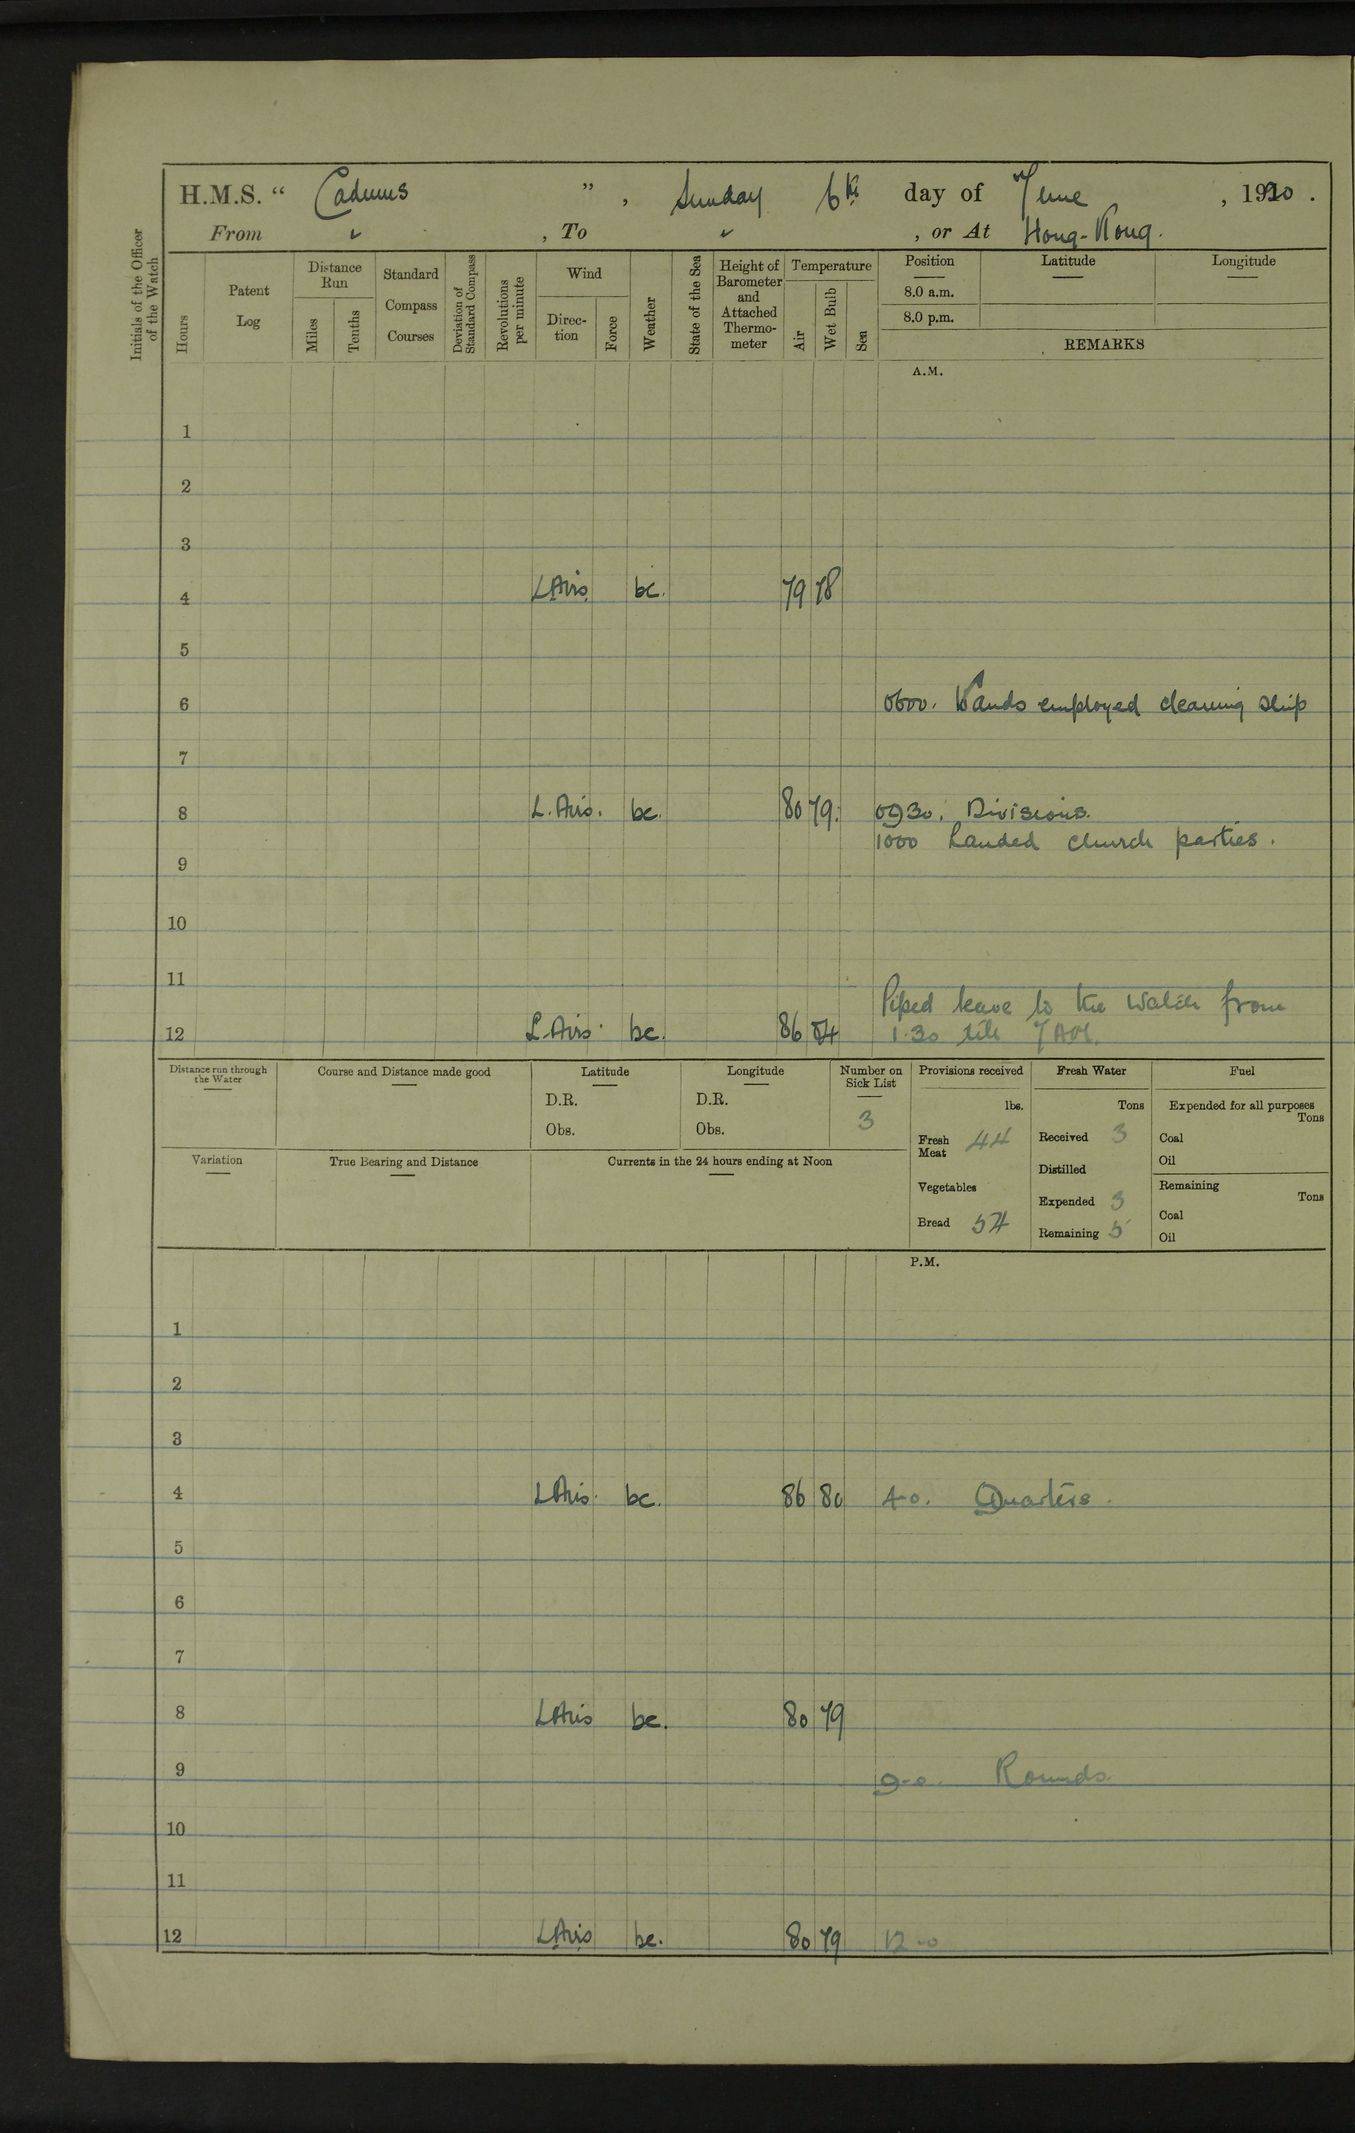 H.M.S. “ Cadmus ”, Sunday 6th day of June, 1920.
From ✓, To ✓, or At Hong-Kong.
Initials of the Officer of the Watch
Hours
Patent Log
Distance Run
Miles
Tenths
Standard Compass Courses
Deviation of Standard Compass
Revolutions per minute
Wind
Direc-tion
Force
Weather
State of the Sea
Height of Barometer and Attached Thermo-meter
Temperature
Air
Wet Bulb
Sea
Position Latitude Longitude
8.0 a.m.
8.0 p.m.
REMARKS
A.M.
1
2
3
4 L.Airs. bc. 79 78
5
6 0600. Hands employed cleaning ship
7
8 L. Airs. bc. 80 79. 0930. Divisions.
1000 Landed church parties.
9
10
11
Piped leave to the watch from
12 L.Airs. bc. 86 84 1.30 till 7AM.
Distance run through the Water
Course and Distance made good
Latitude
D.R.
Obs.
Longitude
D.R.
Obs.
Number on Sick List
3
Provisions received
lbs.
Fresh Meat 44
Vegetables
Bread 54
Fresh Water
Tons
Received 3
Distilled
Expended 3
Remaining 5
Fuel
Expended for all purposes
Tons
Coal
Oil
Remaining
Tons
Coal
Oil
Variation
True Bearing and Distance
Currents in the 24 hours ending at Noon
P.M.
1
2
3
4 L.Airs. bc. 86 80 4-0. Quarters.
5
6
7
8 L.Airs bc. 80 79
9 9-0. Rounds.
10
11
12 L.Airs bc. 80 79 12-0